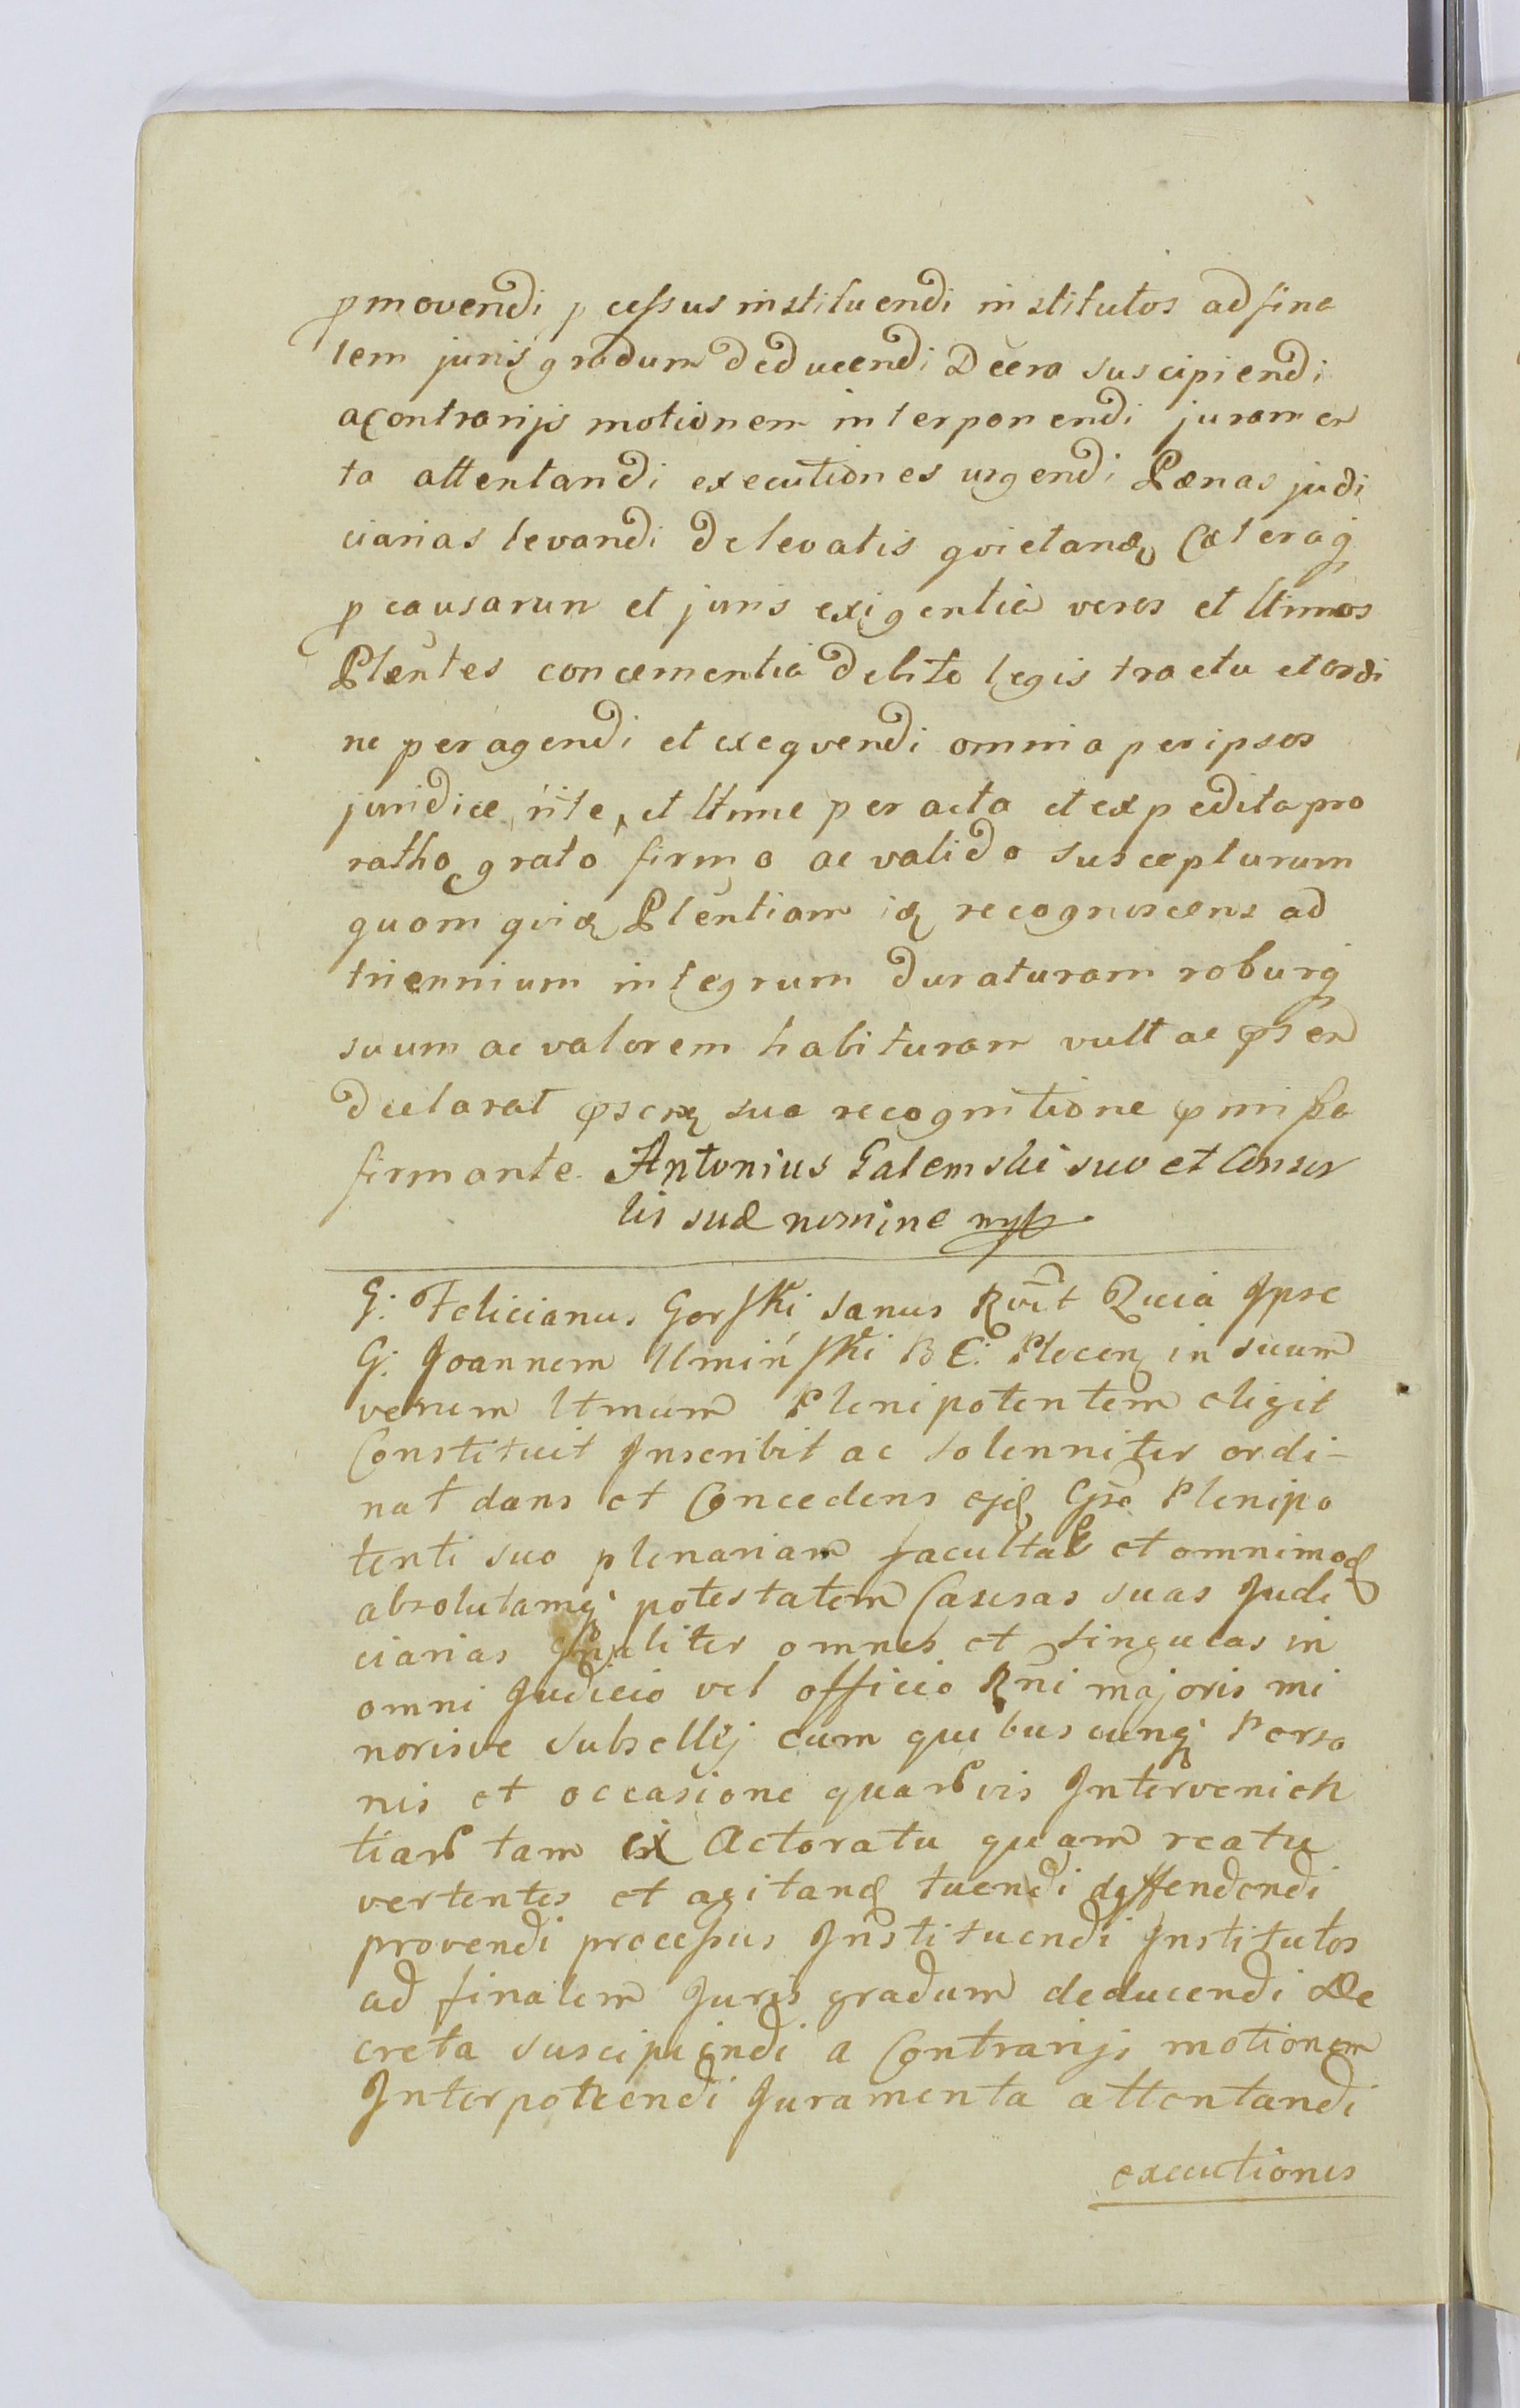 pmovendi pcessus instituendi institutos ad fina
lem juris gradum deducendi Dcera suscipiendi
a contrarijs motionem interponendi juramen
ta attentandi executiones urgendi Pænas judi
ciarias levandi de levatis qvietand Cæteraq
p causarum et juris exigentia veros et ltimos
Plentes concernentia debito legis tractu et ordi
ne peragendi et exeqvendi omnia per ipsos
juridice, rite, et ltime peracta et expedita pro
ratho grato firmo ac valido suscepturum
quam qvid Plentiam id recognoscens ad
triennium integrum duraturam roburq
suum ac valorem habituram vult ac psen
declarat psenq sua recognitione pmissa
firmante. Antonius Galemski suo et Consor
tis suæ nomine mpp
G: Felicianus Gorski sanus Rvit Quia Ipse
G: Joannem Umiński B C: Plocen in suum
verum ltmum Plenipotentem eligit
Constituit Inscribit ac solenniter ordi-
nat dans et Concedens ejd Gso Plenipo
tenti suo plenariam facultat et omnimod
absolutamq potestatem Causas suas Judi
ciarias gnaliter omnes et singulas in
omni Judicio vel officio Rni majoris mi
norisve Subsellij cum quibuscunq Perso
nis et occasione quarvis Intervenien
tiar tam ex Actoratu quam reatu
vertentes et agitand tuendi deffendendi
provendi processus Instituendi Institutos
ad finalem Juris gradum deducendi De
creta suscipiendi a Contrarijs motionem
Interponendi Juramenta attentandi
executiones